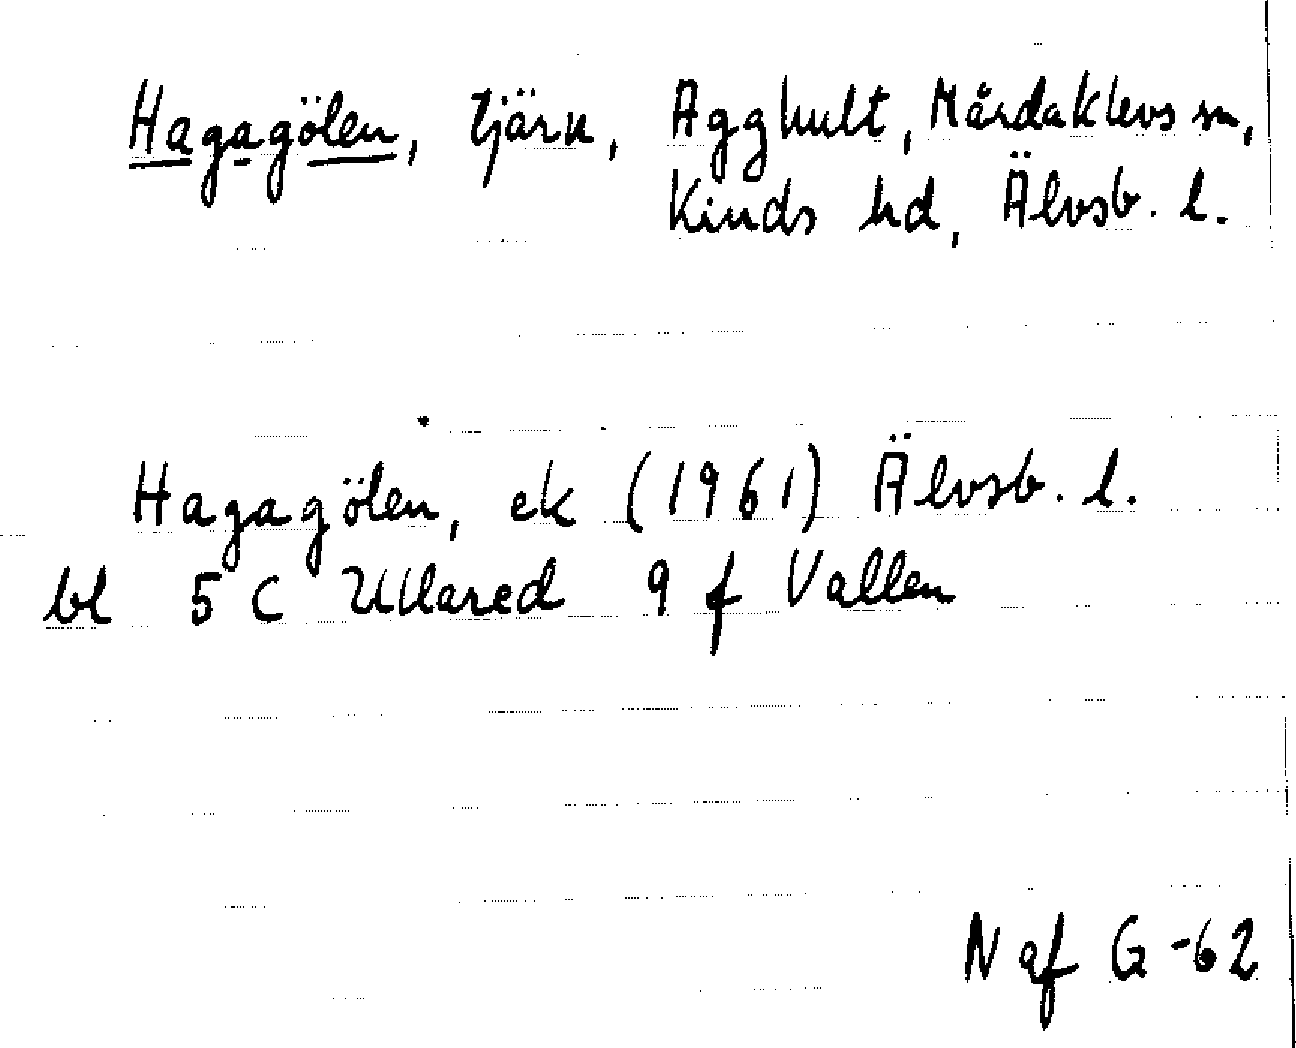 Hagagölen, tjärn, Agghult, Mårdaklevs sn,
Kinds hd, Älvsb. l.
Hagagölen, ek (1961) Älvsb. l.
bl 5 C Ullared 9 f Vallen
N af G -62